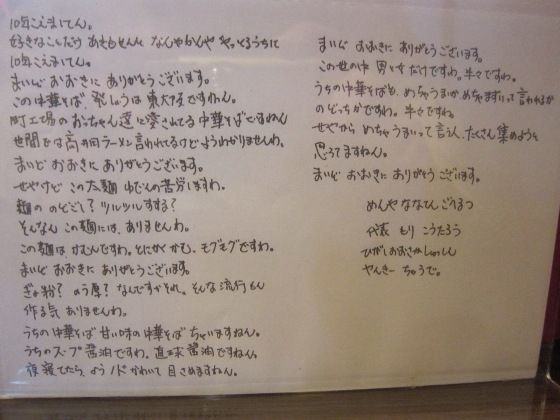 10年こえましてん。
好きなことだけ あきもせんと なんやかんや やっとるうちに
10年こえましてん。
まいど おおきに ありがとうございます。
この中華そば、発しょうは 東大阪ですねん。
町工場の おっちゃん達に愛されてる 中華そばですねん
世間では 高井田ラーメン言われてるけど ようわかりませんわ。
まいど おおきに ありがとうございます。
せやけど この太麺 ゆでんの苦労しますわ。
麺の のどごし？ツルツルすする？
そんなん この麺には、ありませんわ。
この麺は、かむんですわ。とにかく かむ、モグモグですわ。
まいど おおきに ありがとうございます。
ぎょ粉？のう厚？なんですかそれ。そんな流行もん
作る気 ありませんわ。
うちの中華そば 甘い味の中華そば ちゃいますねん。
うちのスープ 醤油ですわ。直球 醤油ですねん。
夜寝てたら、よう ノド かわいて 目さめますねん。
まいど おおきに ありがとうございます。
この世の中 男と女だけですわ。半々ですわ。
うちの中華そばも、めちゃうまいか めちゃまずいって 言われるか
のどっちかですわ。半々ですわ。
せやから めちゃうまいって 言う人、たくさん集めようと
思ってますねん。
まいど おおきに ありがとう ございます。
めんや ななひん ごうほつ
代表 もり こうたろう
ひがしおおさかしゅっしん
やんきー ちゅうで。